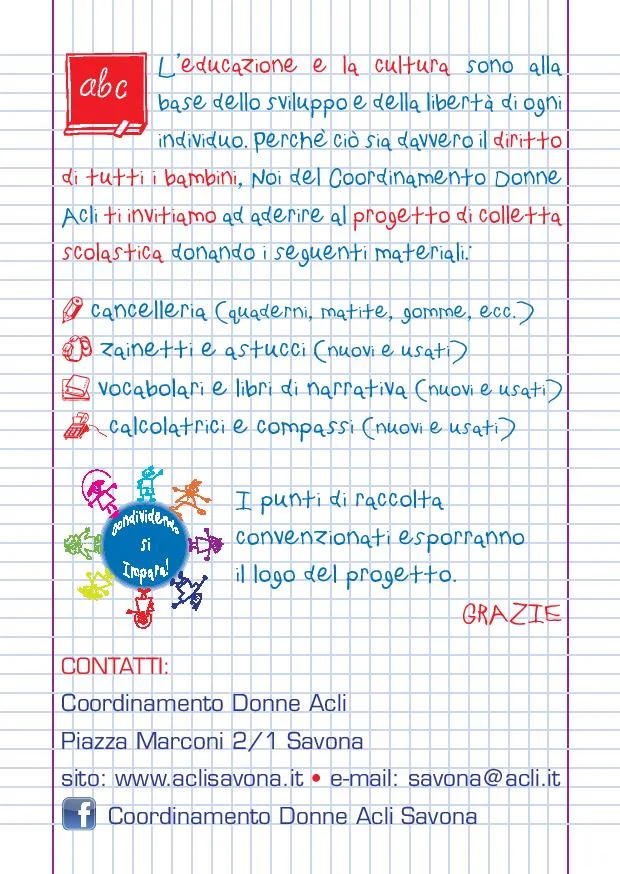 abc
L'educazione e la cultura sono alla
base dello sviluppo e della libertà di ogni
individuo. Perchè ciò sia davvero il diritto
di tutti i bambini, Noi del Coordinamento Donne
Acli ti invitiamo ad aderire al progetto di colletta
scolastica donando i seguenti materiali:
cancelleria (quaderni, matite, gomme, ecc.)
zainetti e astucci (nuovi e usati)
vocabolari e libri di narrativa (nuovi e usati)
calcolatrici e compassi (nuovi e usati)
condividendo
si
Impara!
I punti di raccolta
convenzionati esporranno
il logo del progetto.
GRAZIE
CONTATTI:
Coordinamento Donne Acli
Piazza Marconi 2/1 Savona
sito: www.aclisavona.it • e-mail: savona@acli.it
f Coordinamento Donne Acli Savona